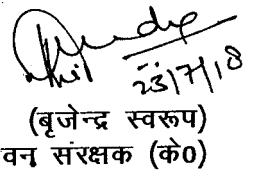 23/7/18
(बृजेन्द्र स्वरूप)
वन संरक्षक (के0)